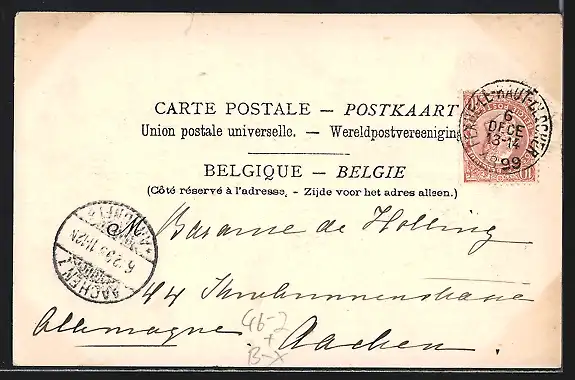 CARTE POSTALE — POSTKAART
Union postale universelle. — Wereldpostvereeniging
BELGIQUE — BELGIE
(Côté réservé à l'adresse. - Zijde voor het adres alleen.)
LE-HAUT-CLOCHER
6
DECE
13-14
99
AACHEN 1
Baronne de
44
Allemagne Aachen.
Gb-2
+
B-X